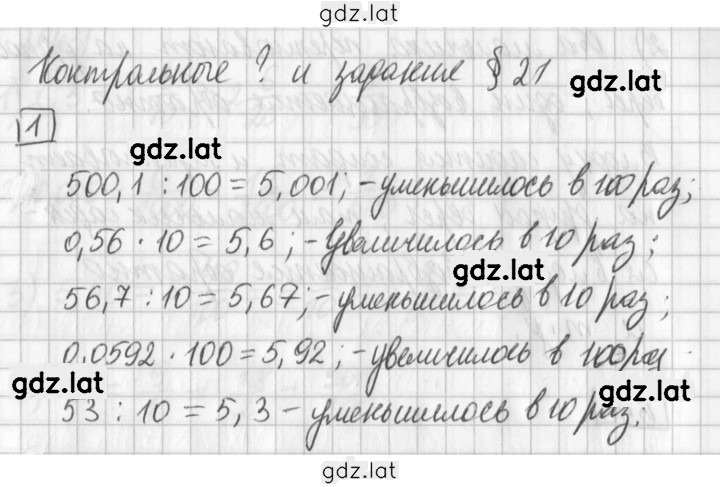 gdz.lat
Контрольные ? и задание § 21
gdz.lat
1
gdz.lat
500,1 : 100 = 5,001; - уменьшилось в 100 раз;
0,56 · 10 = 5,6 ; - Увеличилось в 10 раз ;
gdz.lat
56,7 : 10 = 5,67; - уменьшилось в 10 раз ;
0.0592 · 100 = 5,92 ; - увеличилось в 100 раз
gdz.lat
gdz.lat
53 : 10 = 5,3 - уменьшилось в 10 раз.
gdz.lat